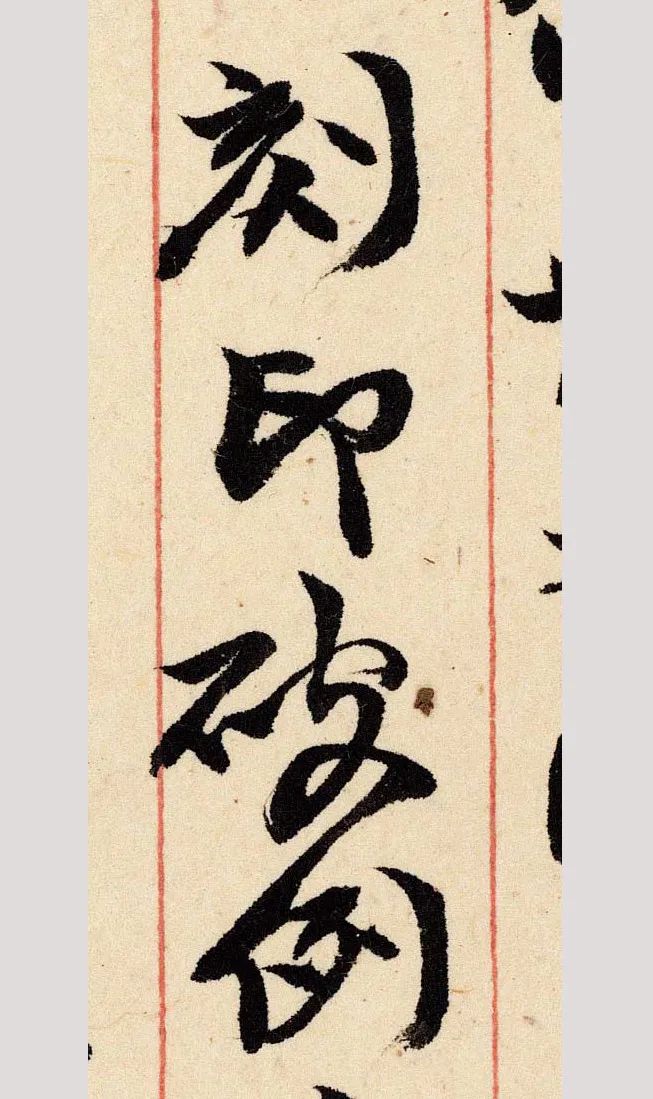 刻印破例